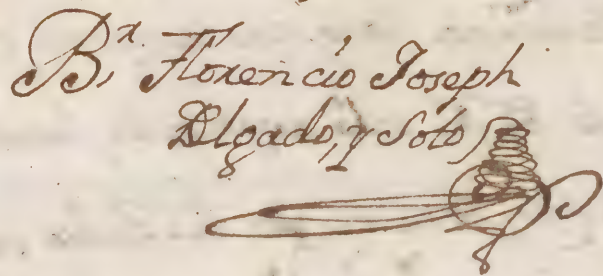 Br. Florencio Joseph
Delgado, y Soto